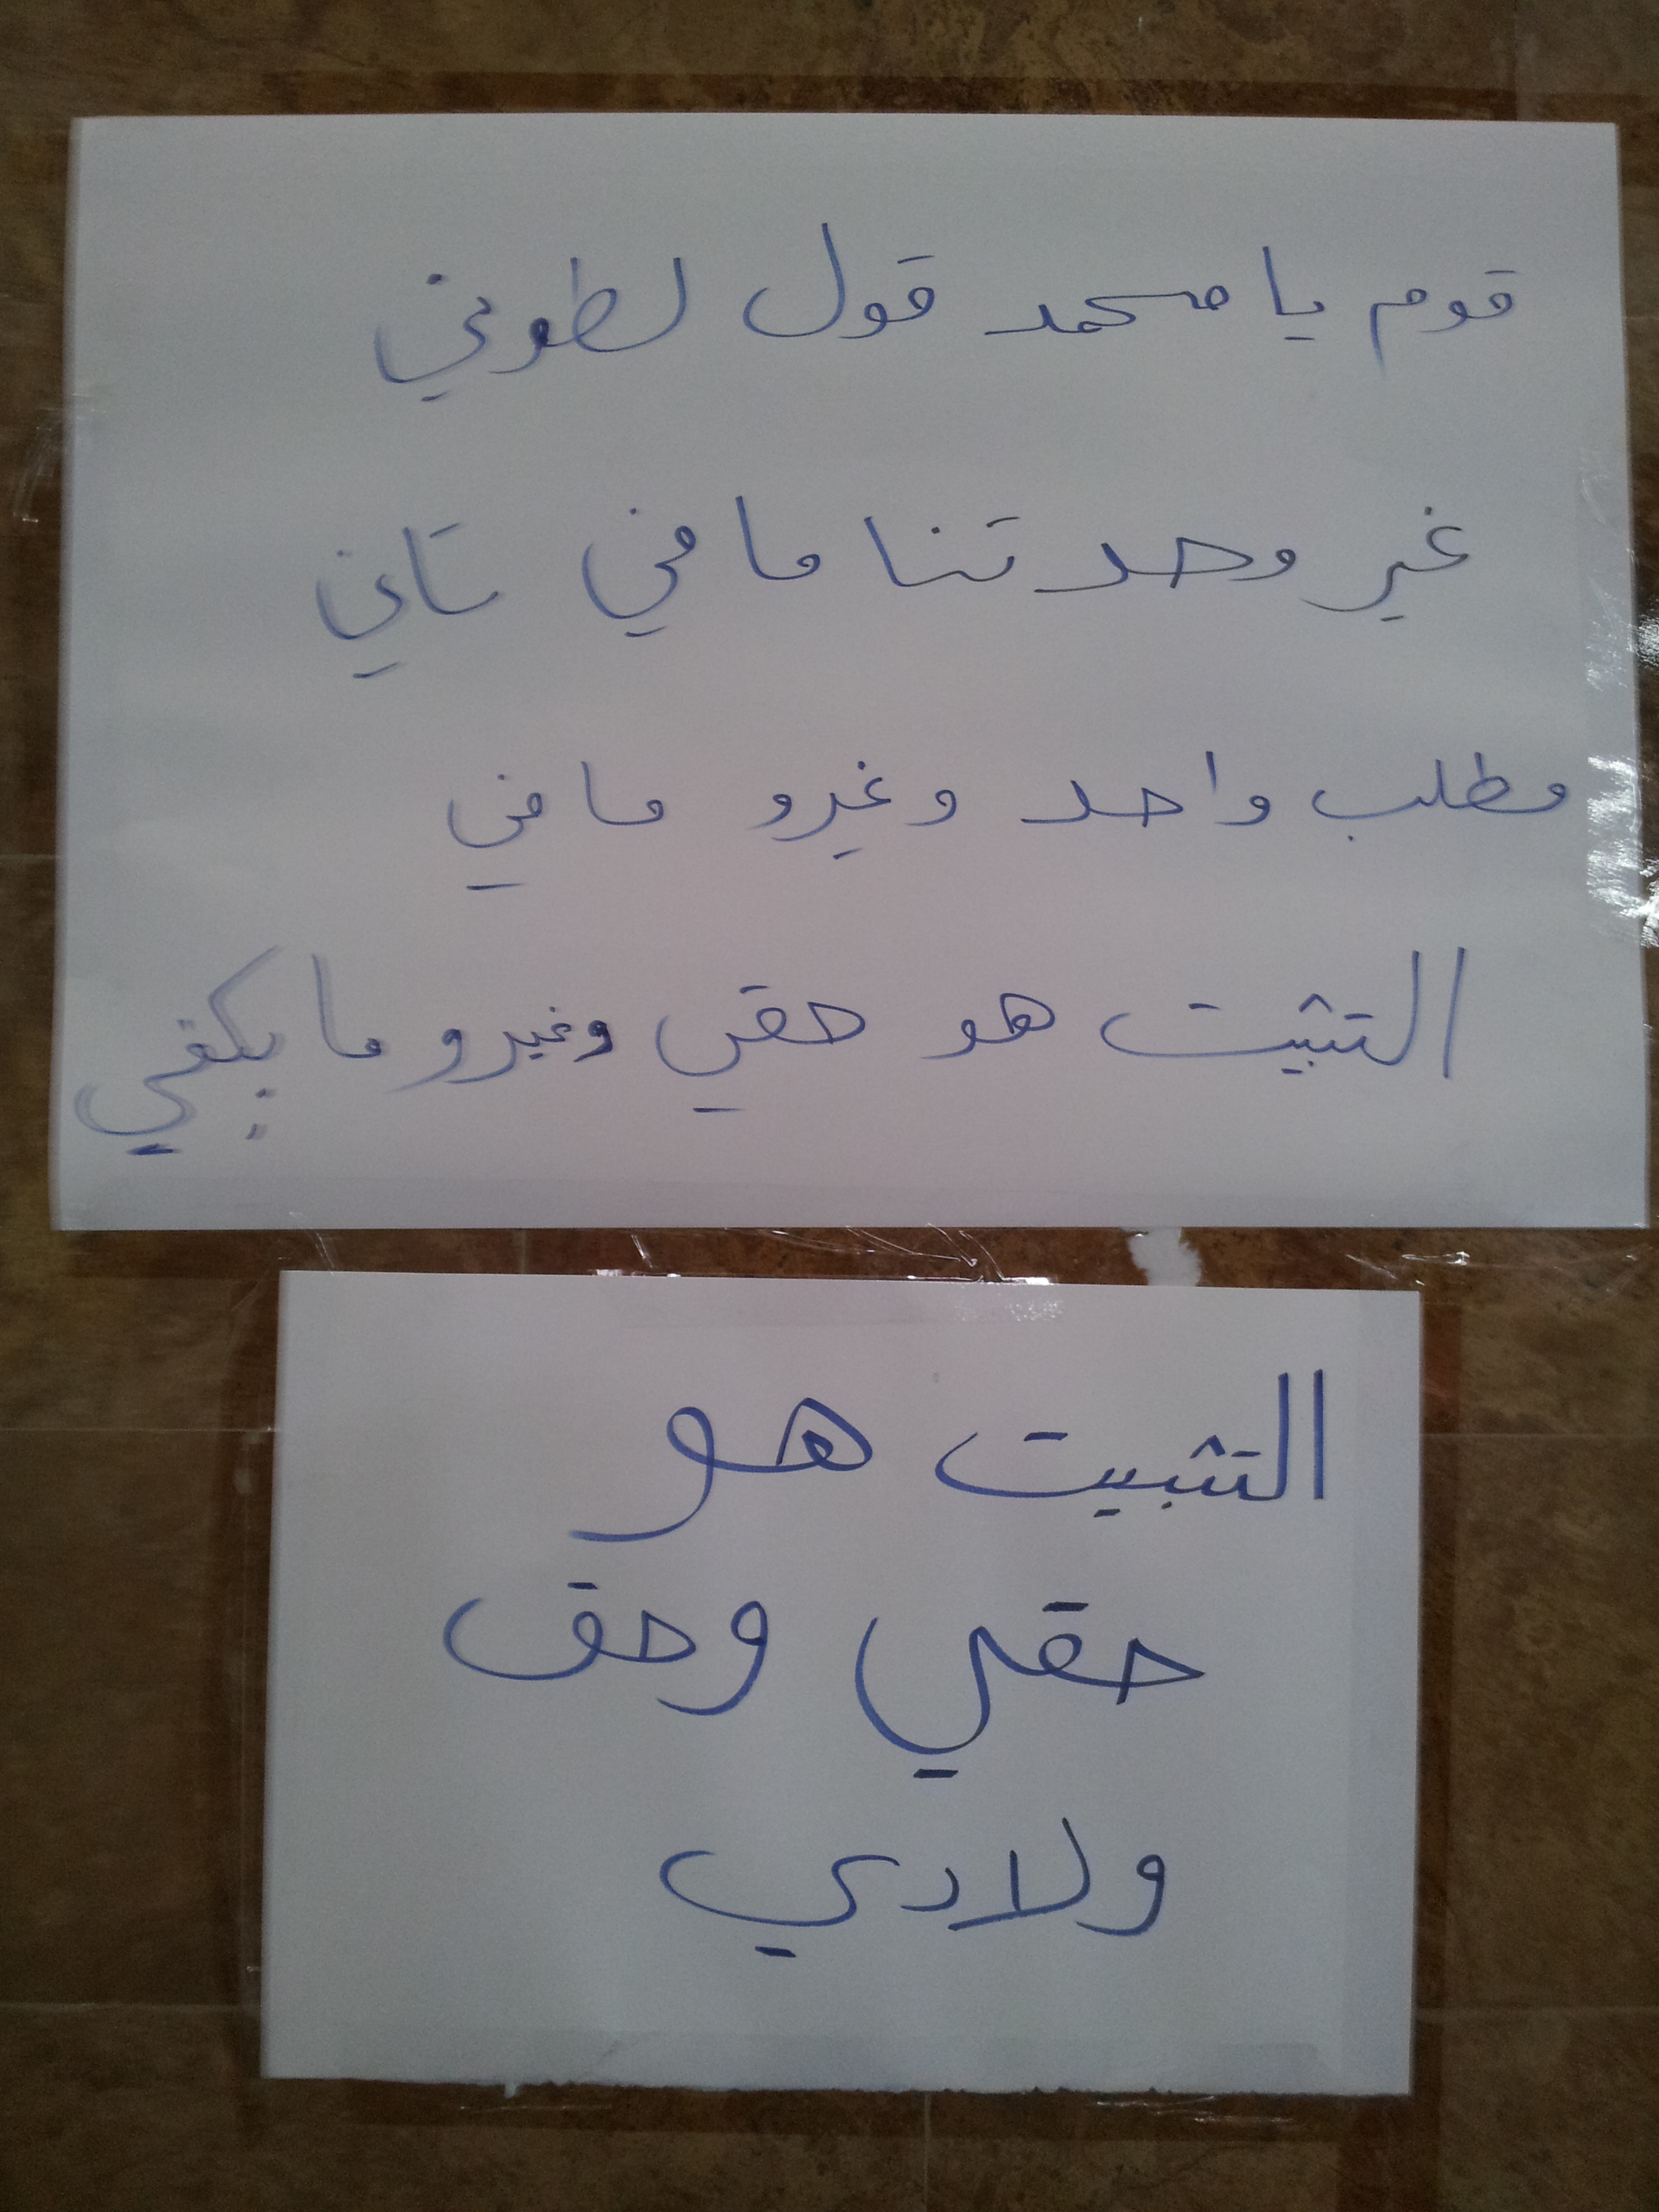 قوم يا محمد قول لطوني
غير وحدتنا ما في تاني
مطلب واحد وغيرو ما في
التثبيت هو حقي وغيرو ما بيكفي
التثبيت هو
حقي وحق
ولادي